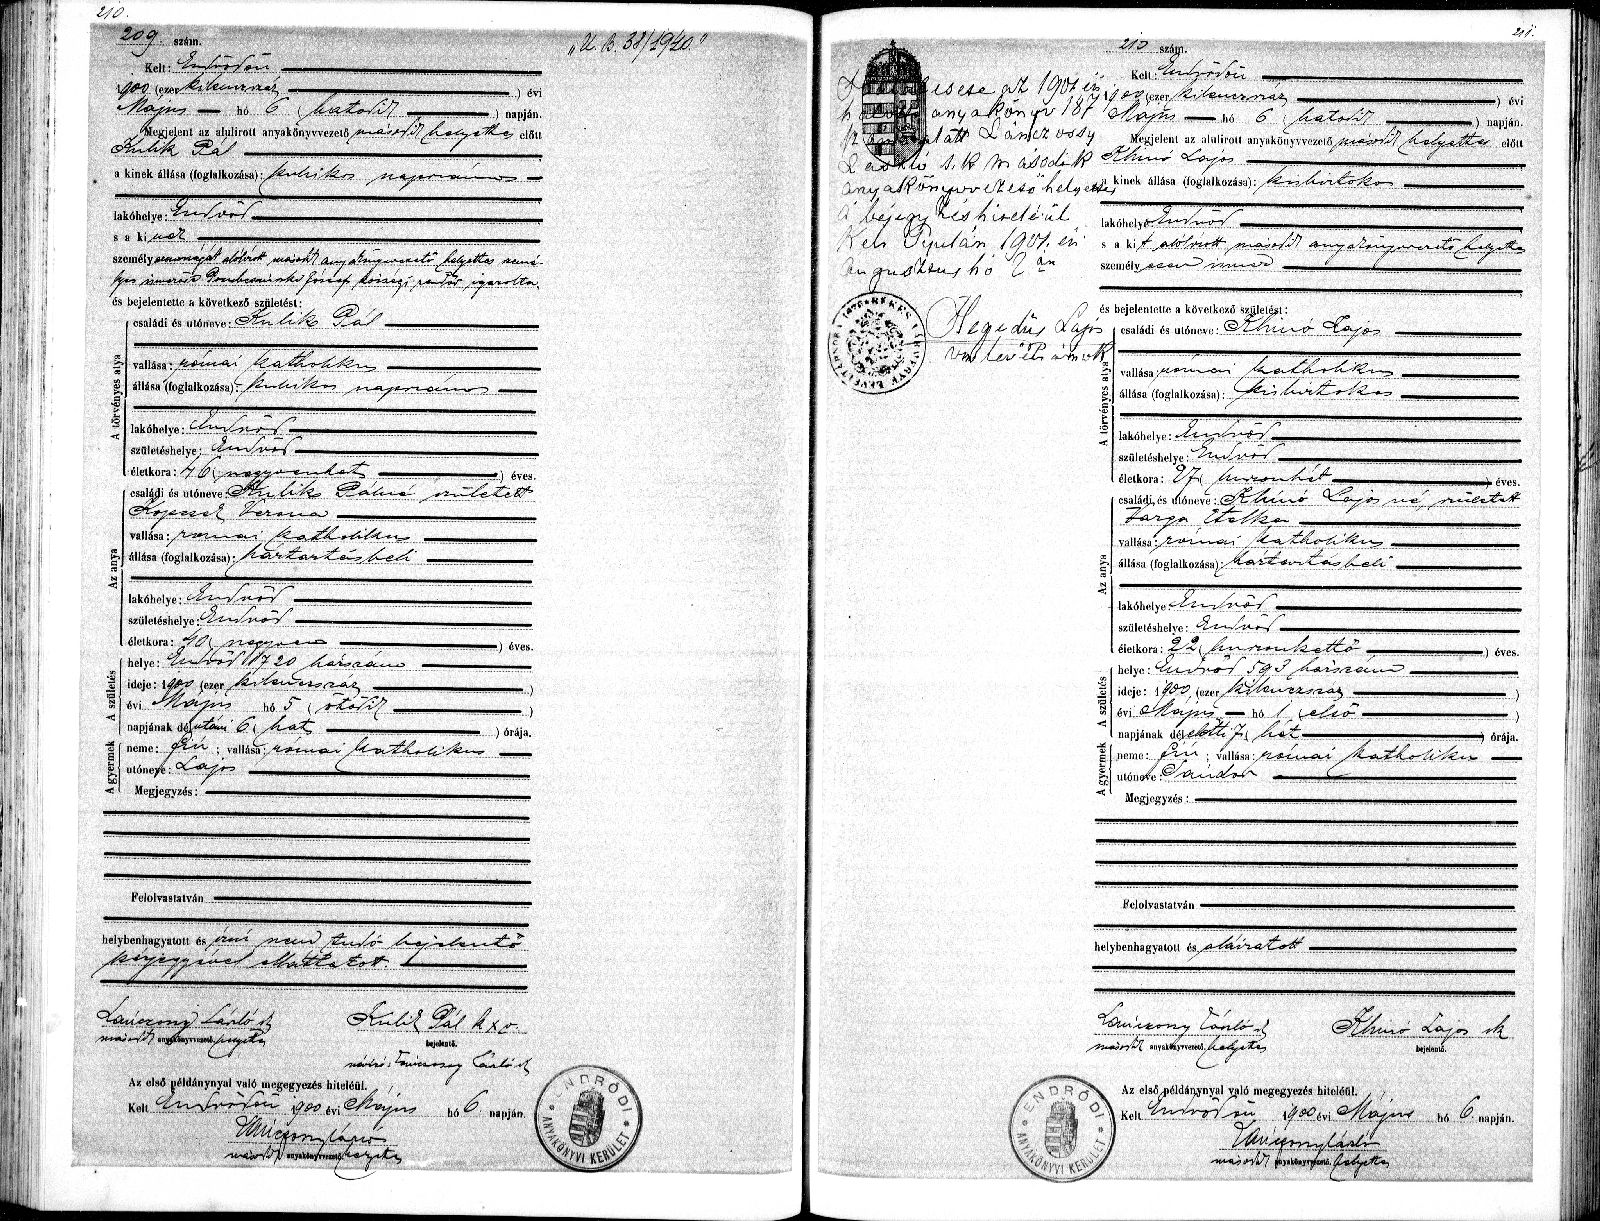 210.
209. szám.
"U. B. 38/1940."
Kelt: Endrődön
1900 (ezer kilenczszáz ) évi
Május hó 6 (hatodik ) napján.
Megjelent az alulirott anyakönyvvezető második helyettes előtt
Kulik Pál
a kinek állása (foglalkozása): kubikos napszámos
lakóhelye: Endrőd
s a ki nek
személyazonosságát alólirott második anyakönyvvezető helyettes szemé-
lyes ismerős József községi rendőr igazolta,
és bejelentette a következő születést:
A törvényes atya
családi és utóneve: Kulik Pál
vallása: római katholikus
állása (foglalkozása): kubikos napszámos
lakóhelye: Endrőd
születéshelye: Endrőd
életkora: 46 (negyvenhat ) éves.
Az anya
családi és utóneve: Kulik Pálné született
Verona
vallása: római katholikus
állása (foglalkozása): háztartásbeli
lakóhelye: Endrőd
születéshelye: Endrőd
életkora: 40 (negyven ) éves.
A születés
helye: Endrőd 1720 házszám
ideje: 1900 (ezer kilenczszáz )
évi Május hó 5 (ötödik )
napjának délutáni 6 (hat ) órája.
A gyermek
neme: fiú; vallása: római katholikus
utóneve: Lajos
Megjegyzés:
Felolvastatván
helybenhagyatott és írni nem tudó bejelentő
kézjegyével elláttatott.
Lánczony László sk
második anyakönyvvezető helyettes
Kulik Pál kxv.
bejelentő.
névíró: Lánczony László sk
Az első példánynyal való megegyezés hiteléül.
Kelt Endrődön 1900 évi Május hó 6 napján.
Lánczony László
második anyakönyvvezető helyettes
ENDRŐDI
ANYAKÖNYVI KERÜLET
az 1901 évi
anyakönyv 187
második
anyakönyvvezető helyettes
bejegyzés hiteléül
Kelt Gyulán 1901. évi
augusztus hó 2án
Hegedüs Lajos
vm levéltárnok
211.
210 szám.
Kelt: Endrődön
1900 (ezer kilenczszáz ) évi
Május hó 6 (hatodik ) napján.
Megjelent az alulirott anyakönyvvezető második helyettes előtt
Khinó Lajos
a kinek állása (foglalkozása): kisbirtokos
lakóhelye: Endrőd
s a kit alólirott második anyakönyvvezető helyettes
személyesen ismer
és bejelentette a következő születést:
A törvényes atya
családi és utóneve: Khinó Lajos
vallása: római katholikus
állása (foglalkozása): kisbirtokos
lakóhelye: Endrőd
születéshelye: Endrőd
életkora: 27 (huszonhét ) éves.
Az anya
családi és utóneve: Khinó Lajosné, született
Varga Etelka
vallása: római katholikus
állása (foglalkozása): háztartásbeli
lakóhelye: Endrőd
születéshelye: Endrőd
életkora: 22 (huszonkettő ) éves.
A születés
helye: Endrőd 593 házszám
ideje: 1900 (ezer kilenczszáz )
évi Május hó 1 (első )
napjának délelőtti 7 (hét ) órája.
A gyermek
neme: fiú; vallása: római katholikus
utóneve: Sándor
Megjegyzés:
Felolvastatván
helybenhagyatott és aláiratott
Lánczony László sk
második anyakönyvvezető helyettes
Khinó Lajos sk
bejelentő.
Az első példánynyal való megegyezés hiteléül.
Kelt Endrődön 1900 évi Május hó 6 napján.
Lánczony László
második anyakönyvvezető helyettes
ENDRŐDI
ANYAKÖNYVI KERÜLET